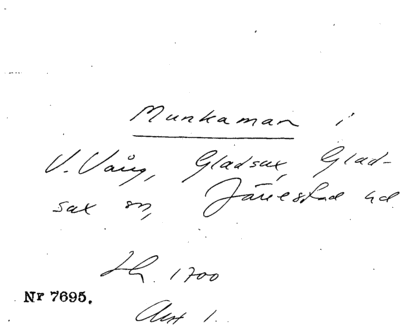 Munkaman i
V. Vång, Gladsax, Glad-
sax sn, Järrestad hd
Sk. 1700
Nr 7695.
Akt 1.